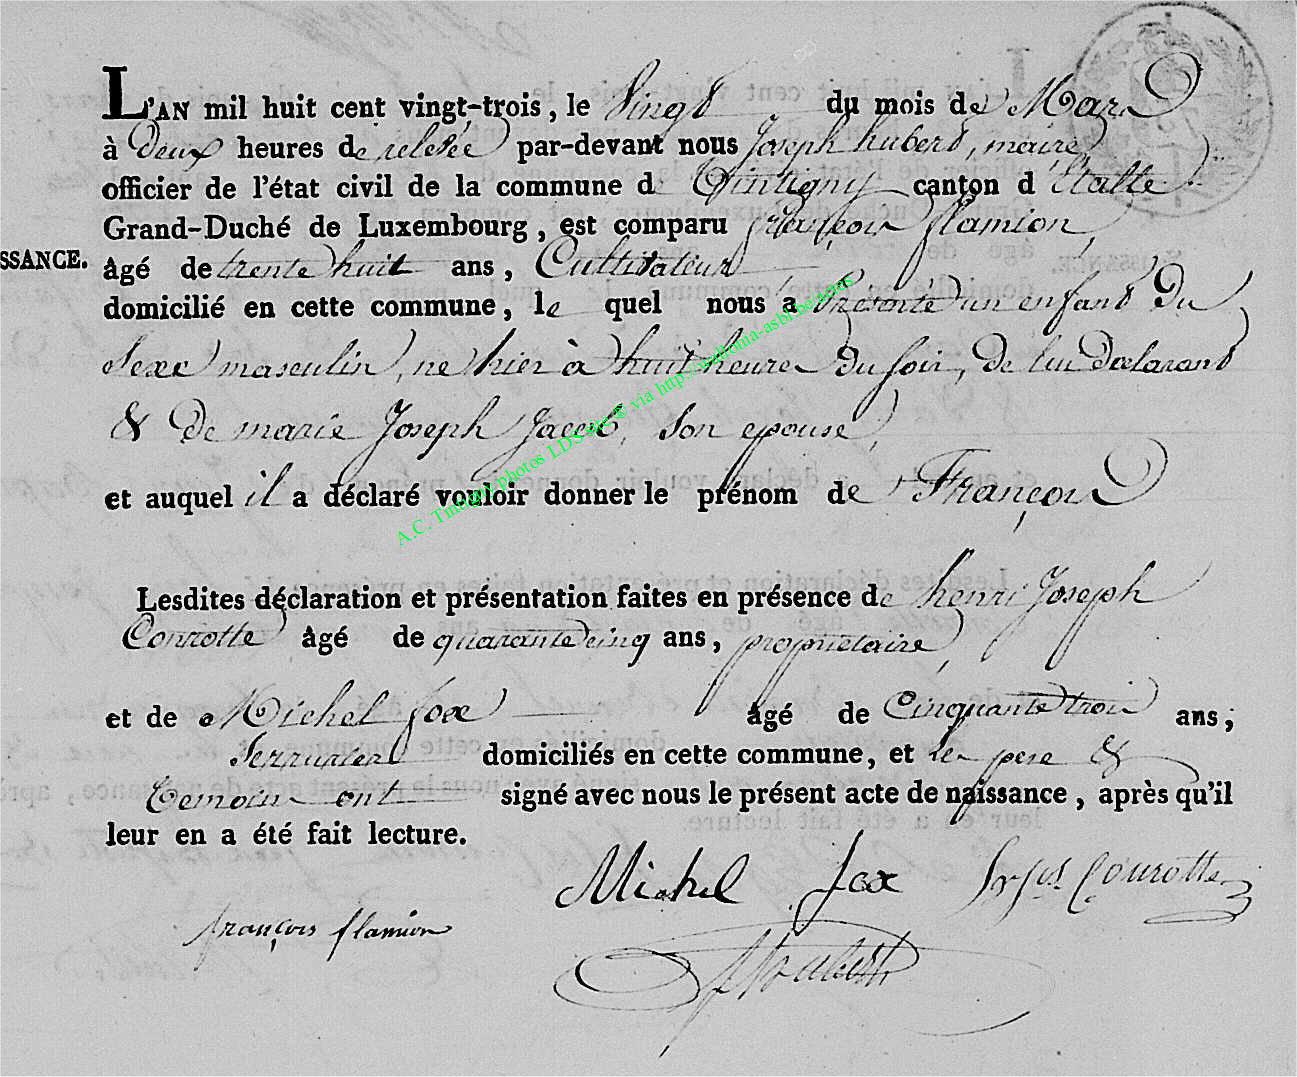 L'AN mil huit cent vingt-trois, le Vingt du mois de Mars
à Deux heures de relevée par-devant nous Joseph hubert, maire
officier de l'état civil de la commune d Tintigny canton d'Etalle
Grand-Duché de Luxembourg, est comparu françois flamion,
SSANCE. âgé de trente huit ans, Cultivateur
domicilié en cette commune, le quel nous a présenté un enfant Du
Sexe masculin, né hier à huit heures Du soir, De lui Déclarant
& De marie Joseph Jacob, Son epouse,
et auquel il a déclaré vouloir donner le prénom de François
Lesdites déclaration et présentation faites en présence de henri Joseph
Conrotte âgé de quarante cinq ans, propriétaire,
et de Michel fox âgé de Cinquante trois ans,
Serrurier domiciliés en cette commune, et le pere &
Temoins ont signé avec nous le présent acte de naissance, après qu'il
leur en a été fait lecture.
Michel fox Conrotte
françois flamion
A.C. Tintigny photos LDS via http://wallonia-asbl.be/actes